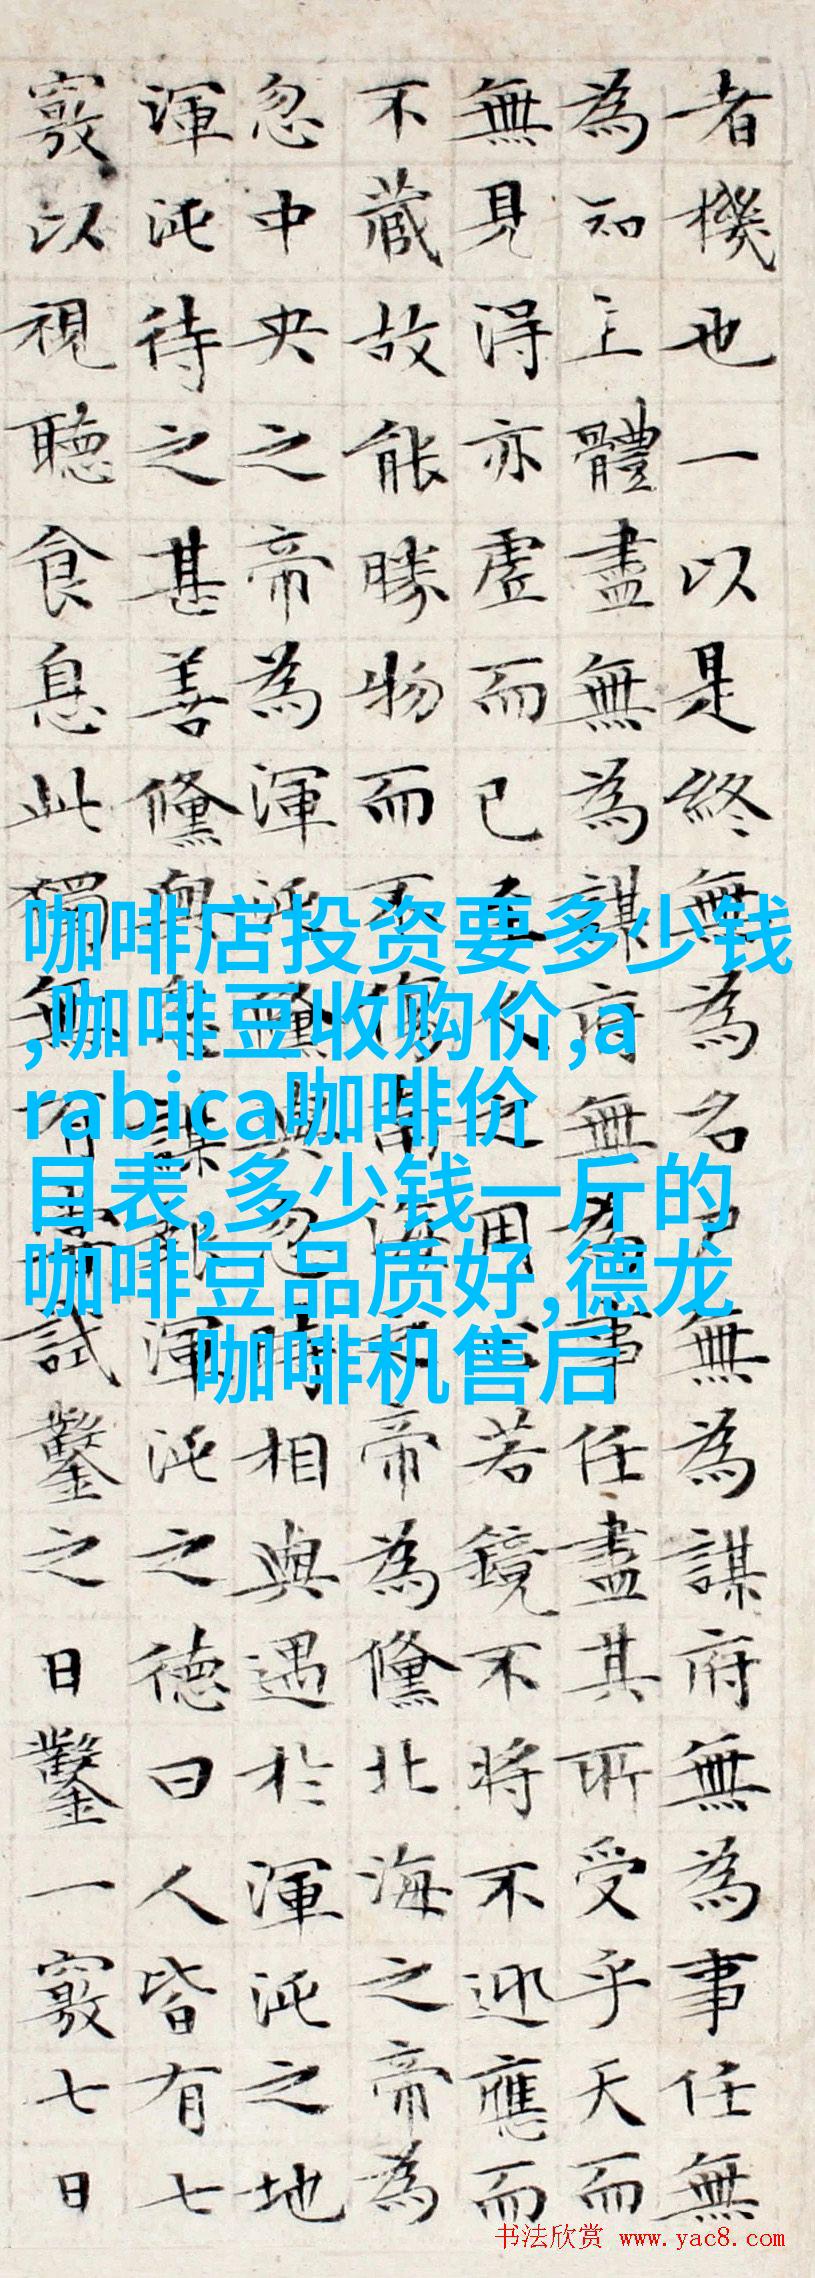 者機也一以是終無為名尸無為謀府無為事任無
為知主體盡無為謀府無為事任盡其所受乎天而
無見得亦虛而已至人之用心若鏡不將不迎應而
不藏故能勝物而不傷南海之帝為儵北海之帝為
忽中央之帝為渾沌儵與忽時相與遇於渾沌之地
渾沌待之甚善儵與忽謀報渾沌之德曰人皆有七
竅以視聽食息此獨無有嘗試鑿之日鑿一竅七日
咖啡店投资要多少钱
,咖啡豆收购价,a
rabica咖啡价
目表,多少钱一斤的
咖啡豆品质好,德龙
咖啡机售后
书法欣赏 www.yac8.com